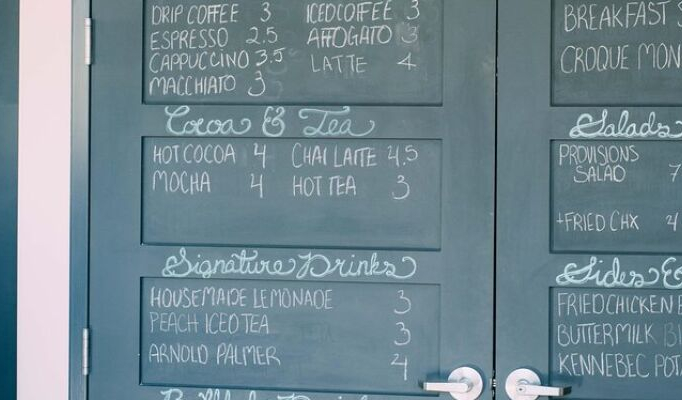 DRIP COFFEE 3 ICED COFFEE 3
ESPRESSO 2.5 AFFOGATO 3
CAPPUCCINO 3.5 LATTE 4
MACCHIATO 3
Cocoa & Tea
HOT COCOA 4 CHAI LATTE 4.5
MOCHA 4 HOT TEA 3
Signature Drinks
HOUSEMADE LEMONADE 3
PEACH ICED TEA 3
ARNOLD PALMER 4
BREAKFAST S
CROQUE MON
Salads
PROVISIONS
SALAD 7
+FRIED CHX 4
Sides &
FRIED CHICKEN B
BUTTERMILK BI
KENNEBEC POTA